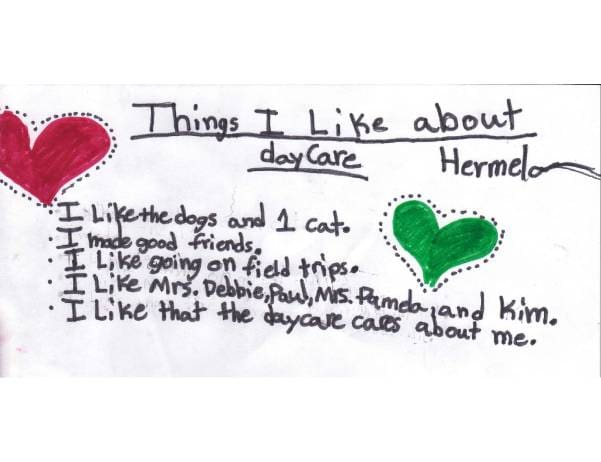 Things I Like about
daycare Hermela
· I Like the dogs and 1 cat.
· I made good friends.
· I Like going on field trips.
· I Like Mrs. Debbie, Paul, Mrs. Pamela, and Kim.
· I Like that the daycare cares about me.